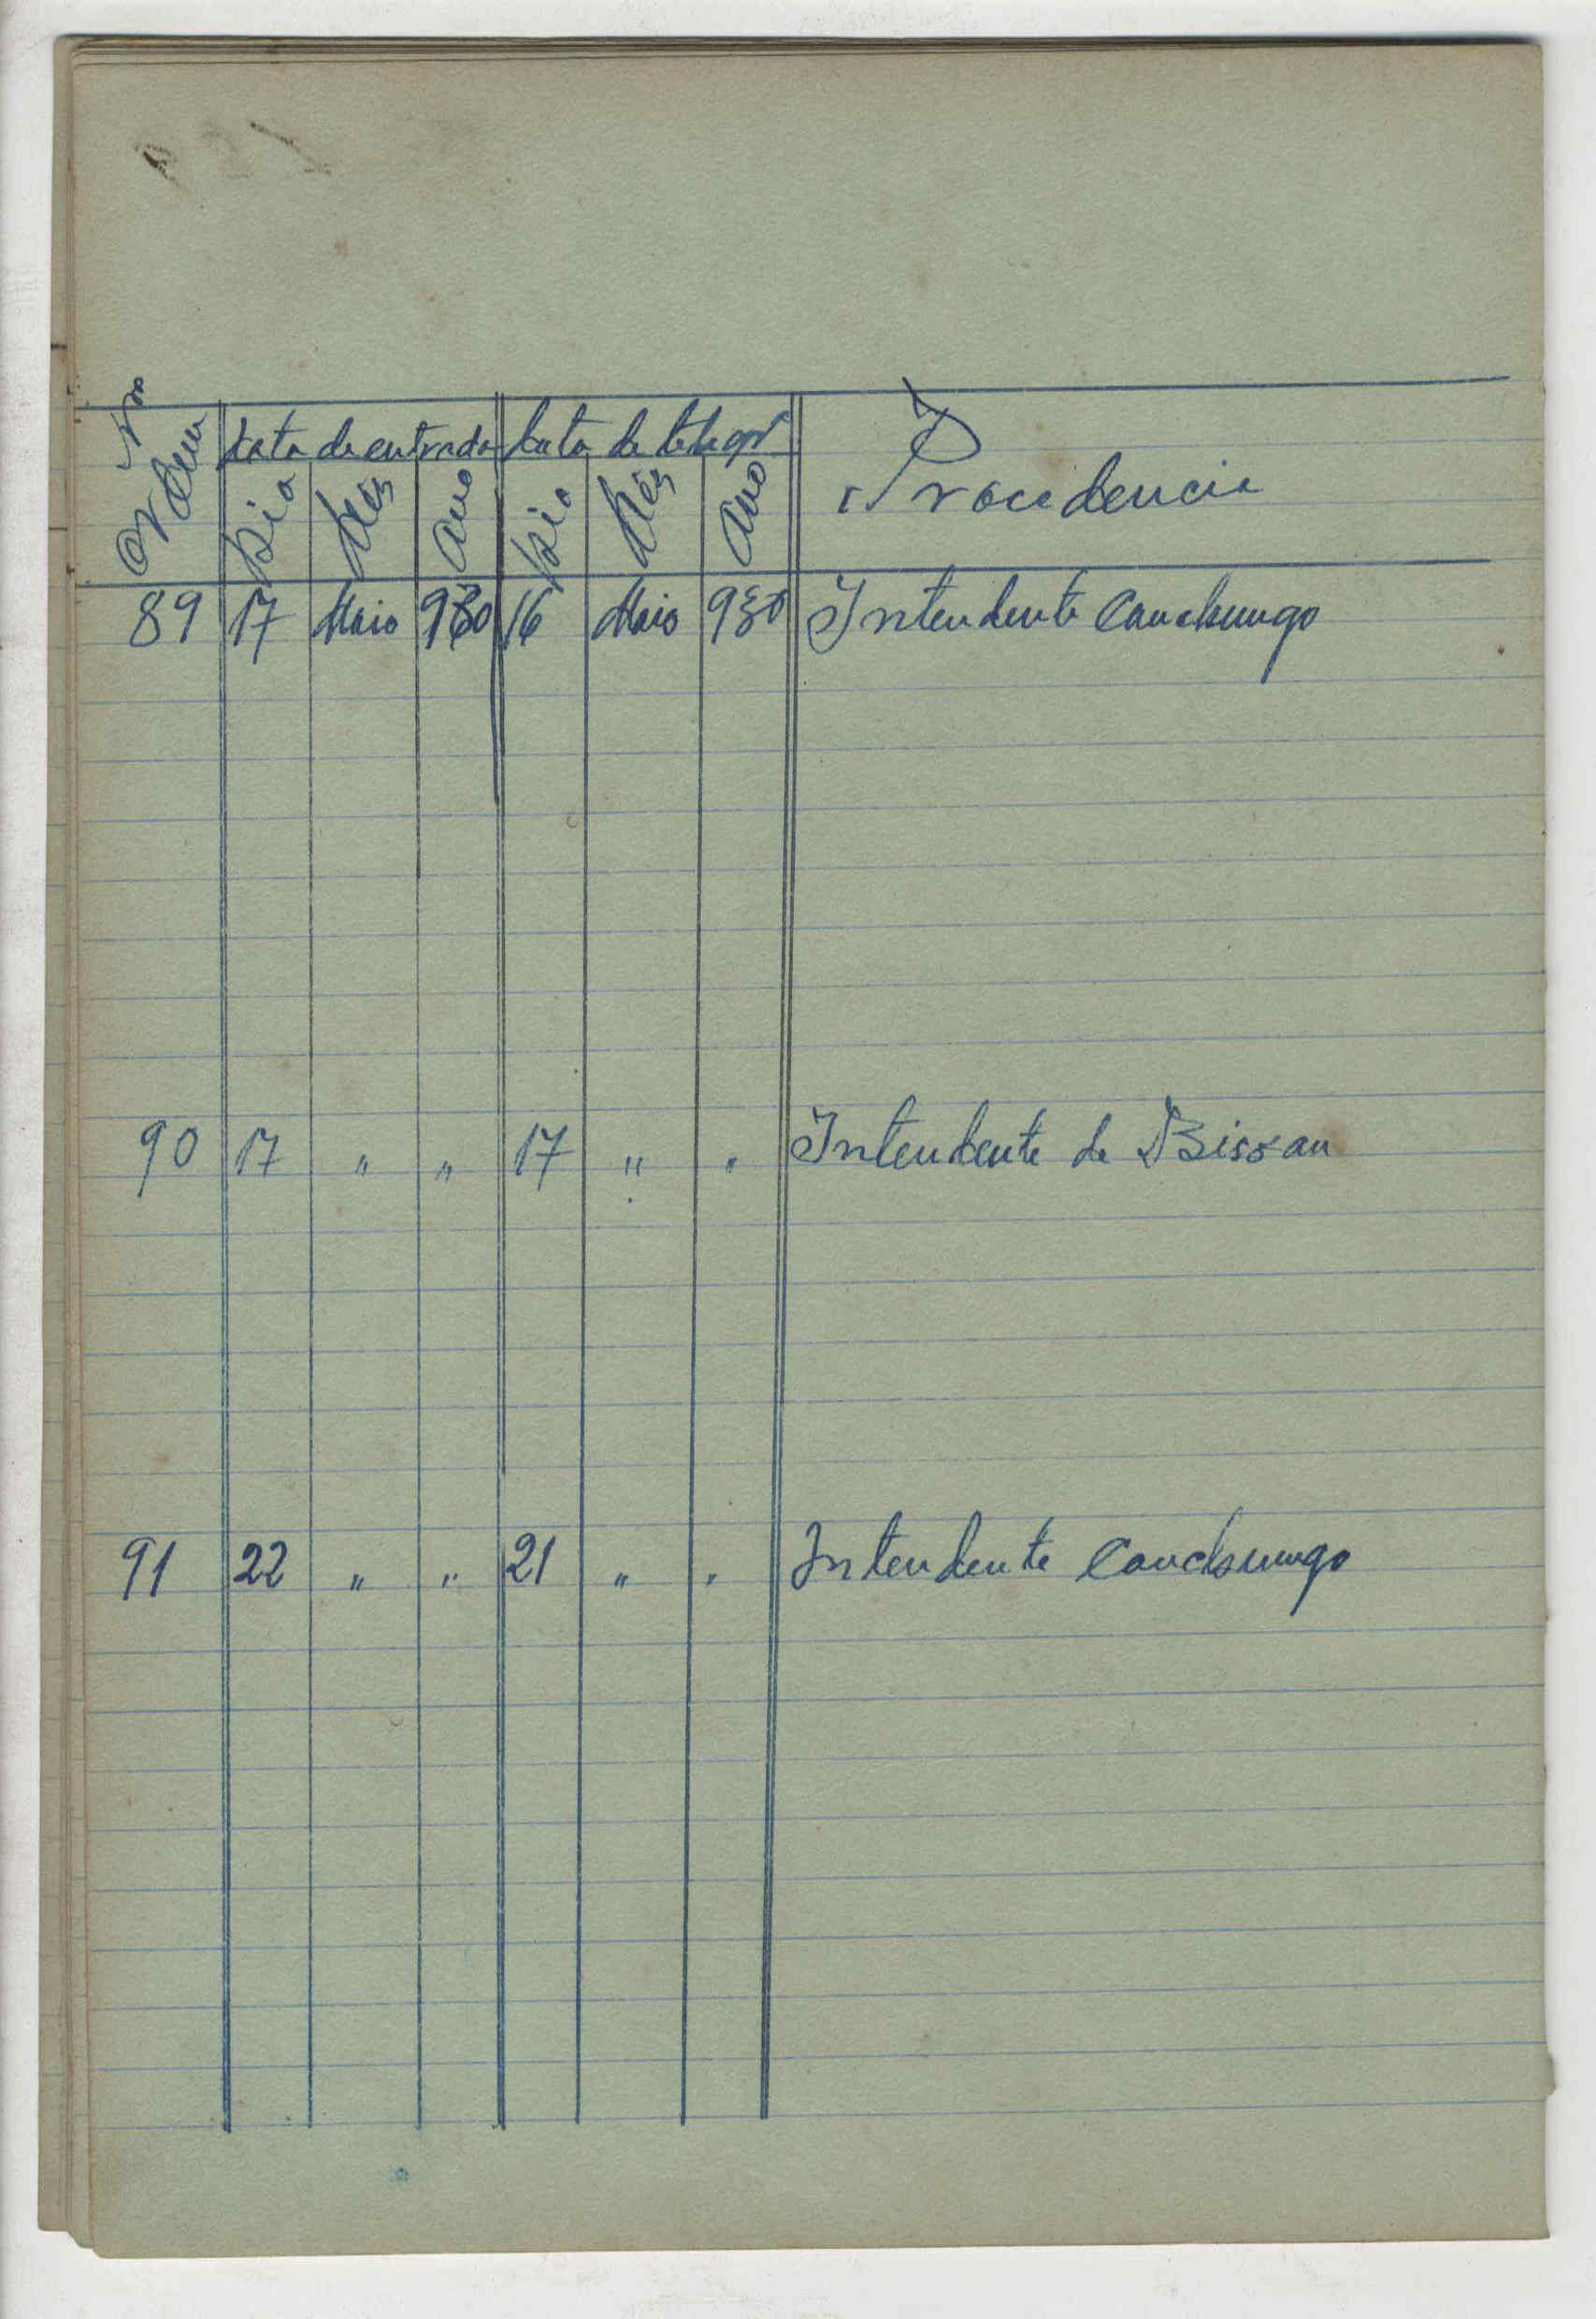 Data de entrada Data de telegr
Dia Mês Ano Dia Mês Ano Procedencia
89 17 Maio 930 16 Maio 930 Intendente Canchungo
90 17 " " 17 " " Intendente de Bissau
91 22 " " 21 " " Intendente Canchungo